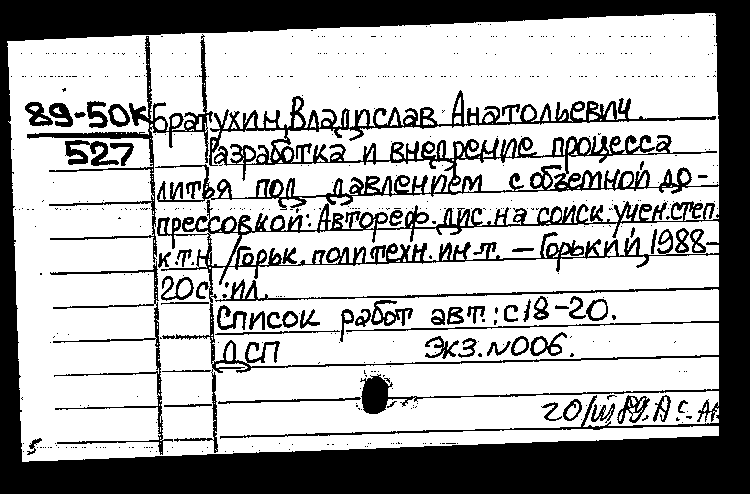 89-50к Братухин, Владислав Анатольевич.
527 Разработка и внедрение процесса
литья под давлением с объемной до-
прессовкой: Автореф. дис. на соиск. учен. степ.
к.т.н. / Горьк. политехн. ин-т. – Горький, 1988–
20с.: ил.
Список работ авт.: с18-20.
ДСП Экз. N006.
20/VII 89. А
5